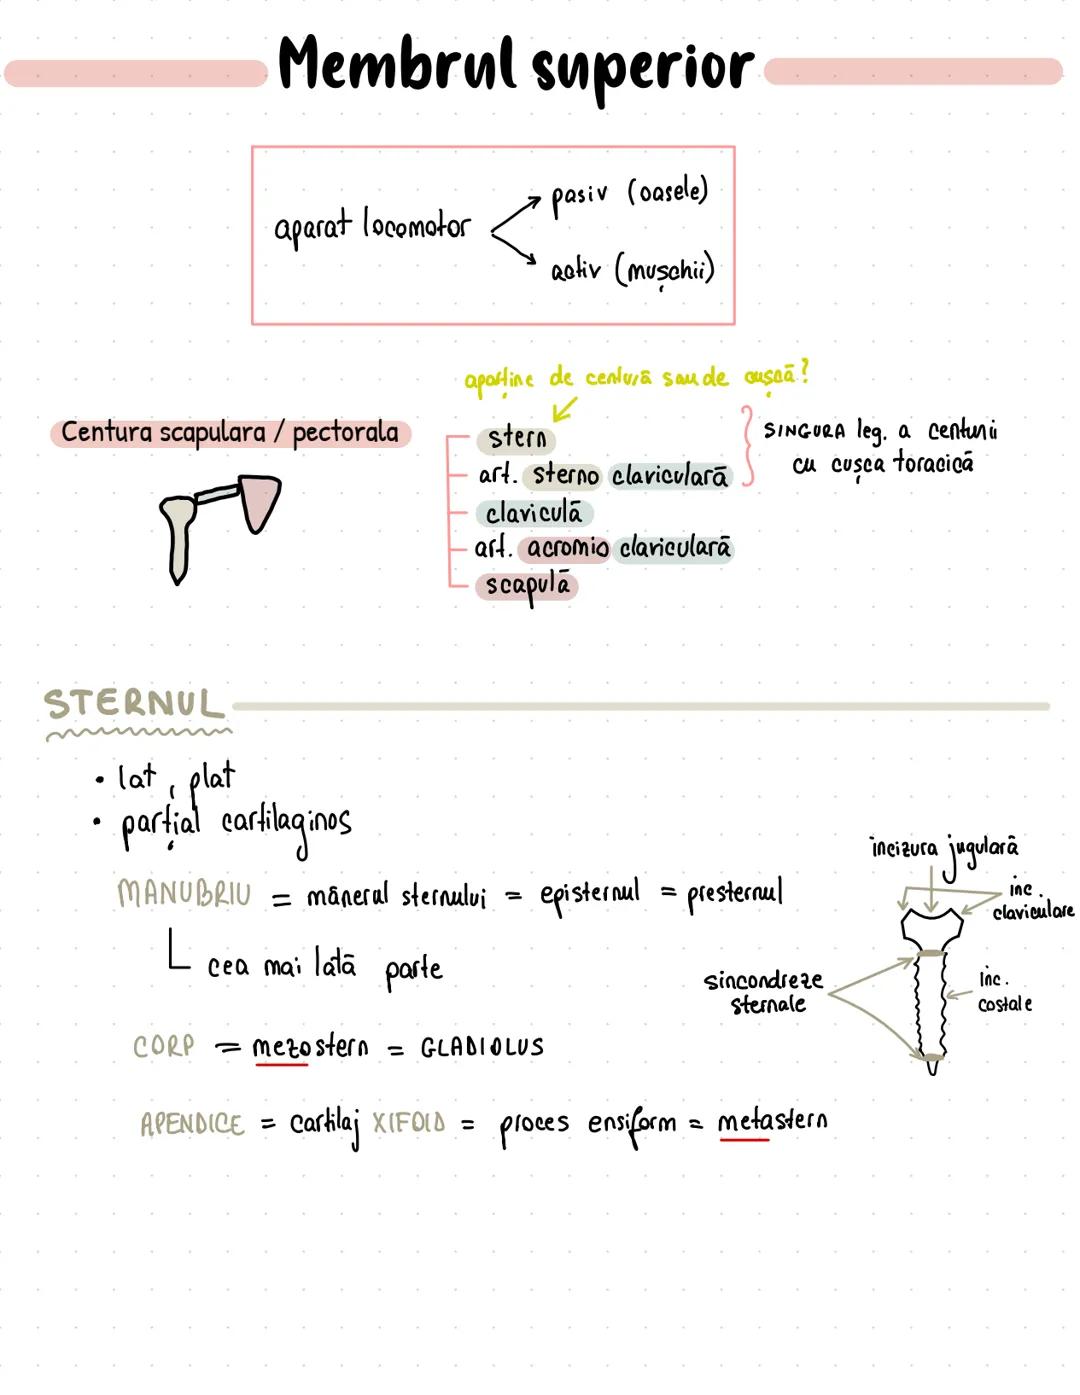 Membrul superior
aparat locomotor
pasiv (oasele)
activ (mușchii)
aparține de centură sau de cușcă?
Centura scapulara / pectorala
stern
art. sterno claviculară
claviculă
art. acromio claviculară
scapulă
SINGURA leg. a centurii
cu cușca toracică
STERNUL
• lat, plat
• parțial cartilaginos
MANUBRIU = mânerul sternului = episternul = presternul
cea mai lată parte
CORP = mezostern = GLADIOLUS
APENDICE = cartilaj XIFOID = proces ensiform = metastern
incizura jugulară
inc.
claviculare
sincondreze
sternale
Inc.
costale